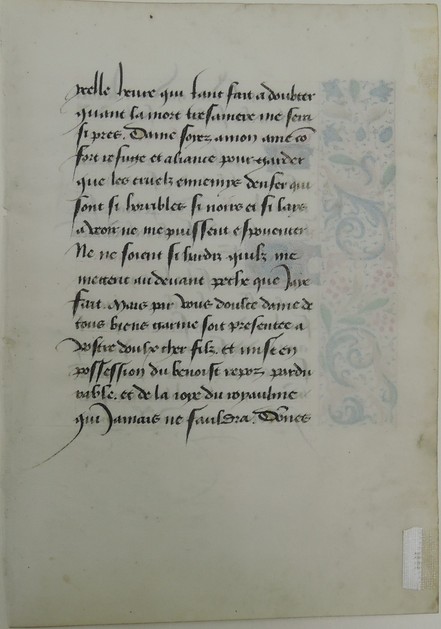 ycelle heure qui tant fait a doubter
quant la mort tresamere me sera
si pres. Dame soyez a mon ame co͂
fort refuge et aliance pour garder
que les cruelz ennemys denfer qui
sont si horribles si noirs et si lais
a veoir ne me puissent espouenter
Ne ne soient si hardiz quilz me
mettent au deuant peche que Jaye
fait. Mais par vous doulce dame de
tous biens garnie soit presentee a
vostre doulx cher filz. et mise en
possession du benoist repoz pardu
rable. et de la ioye du royaulme
qui Jamais ne fauldra.